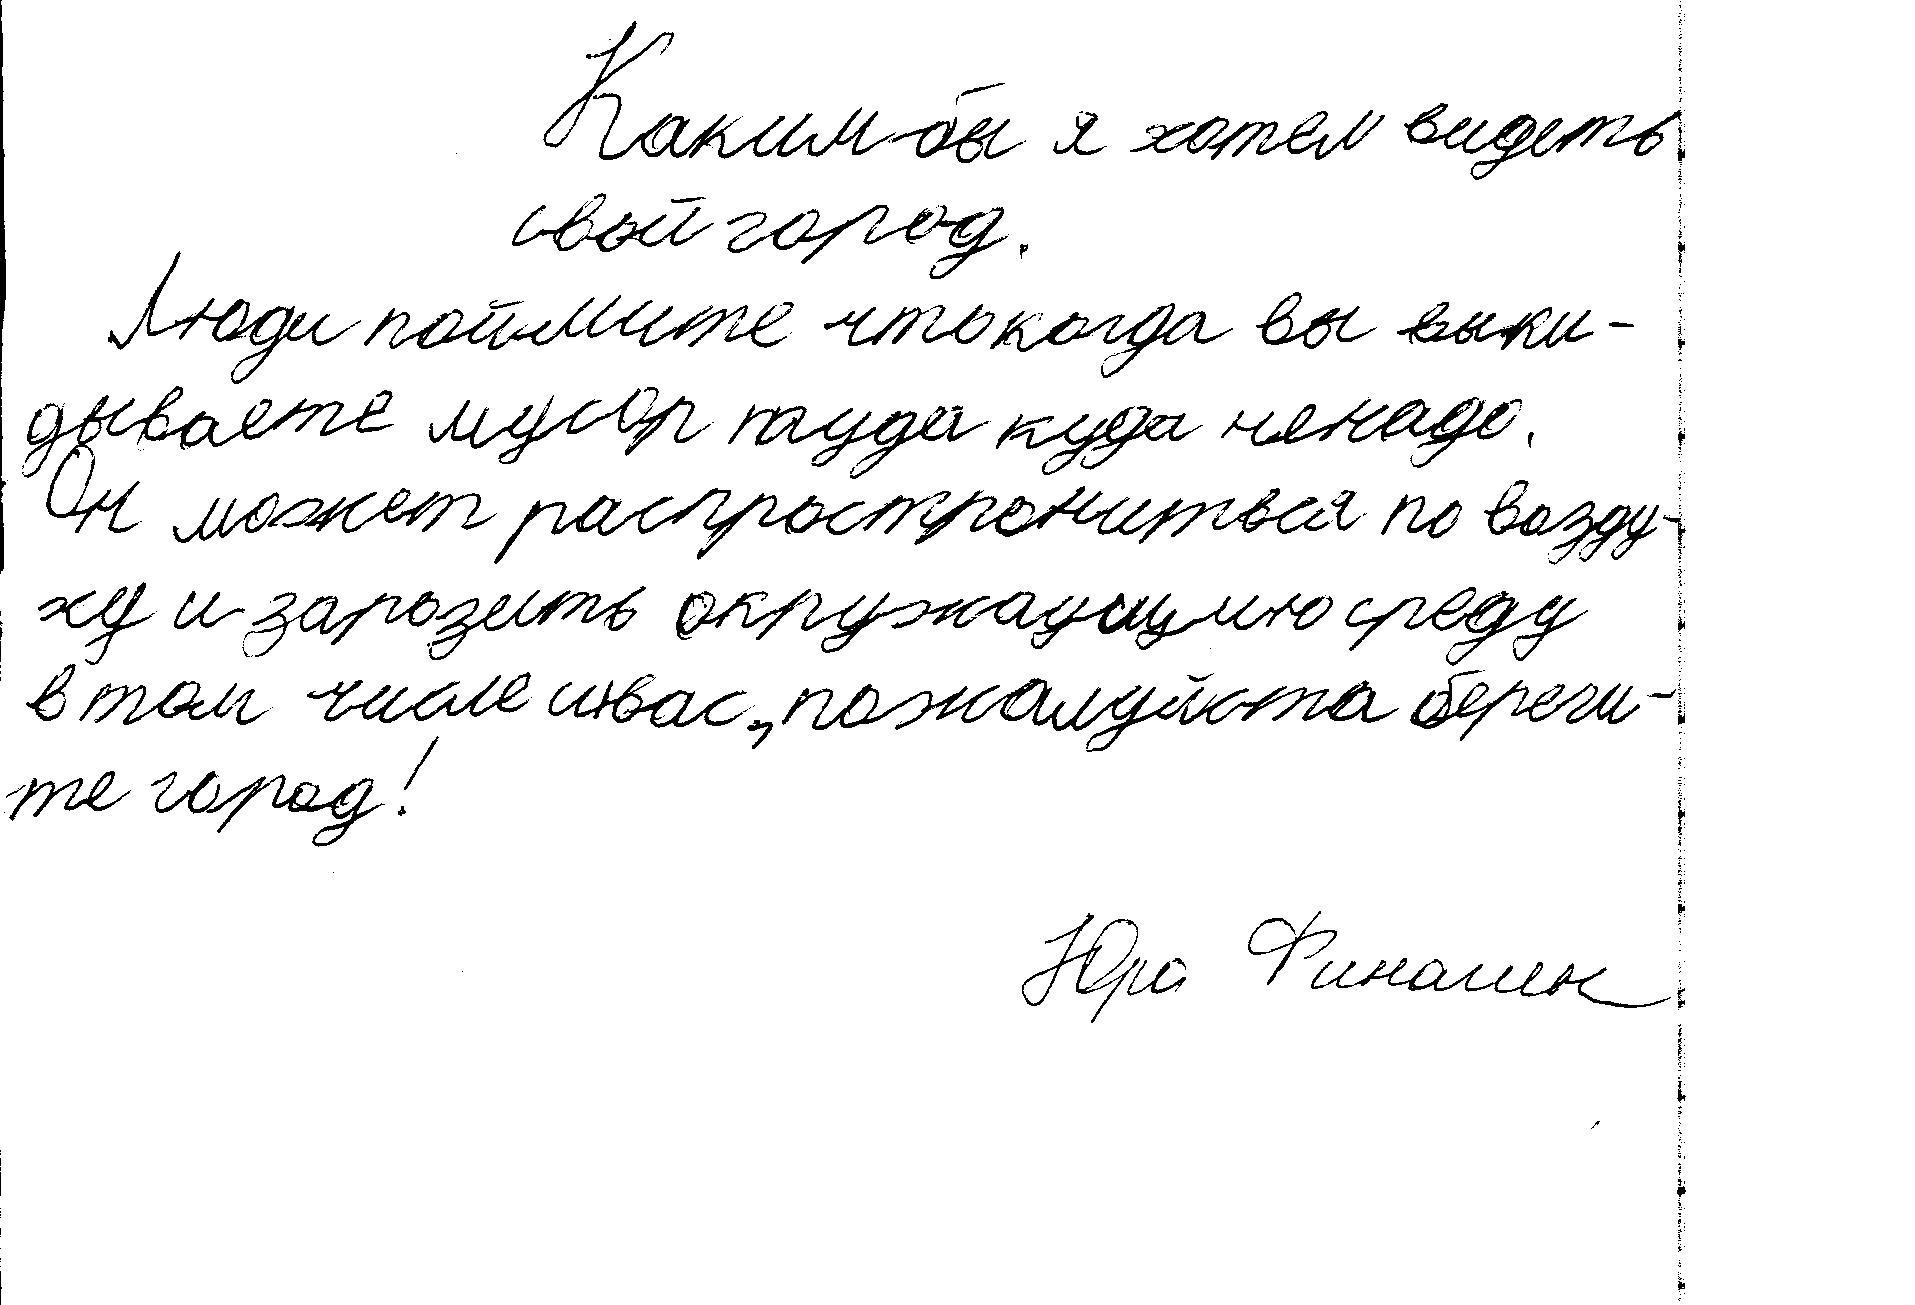 Каким бы я хотел видеть
свой город.
Люди поймите что когда вы выки-
дываете мусор туда куда ненадо.
Он может распрострониться по возду-
ху и зарозить окружаущмию среду
в том числе и вас, пожалуйста береги-
те город!
Юра